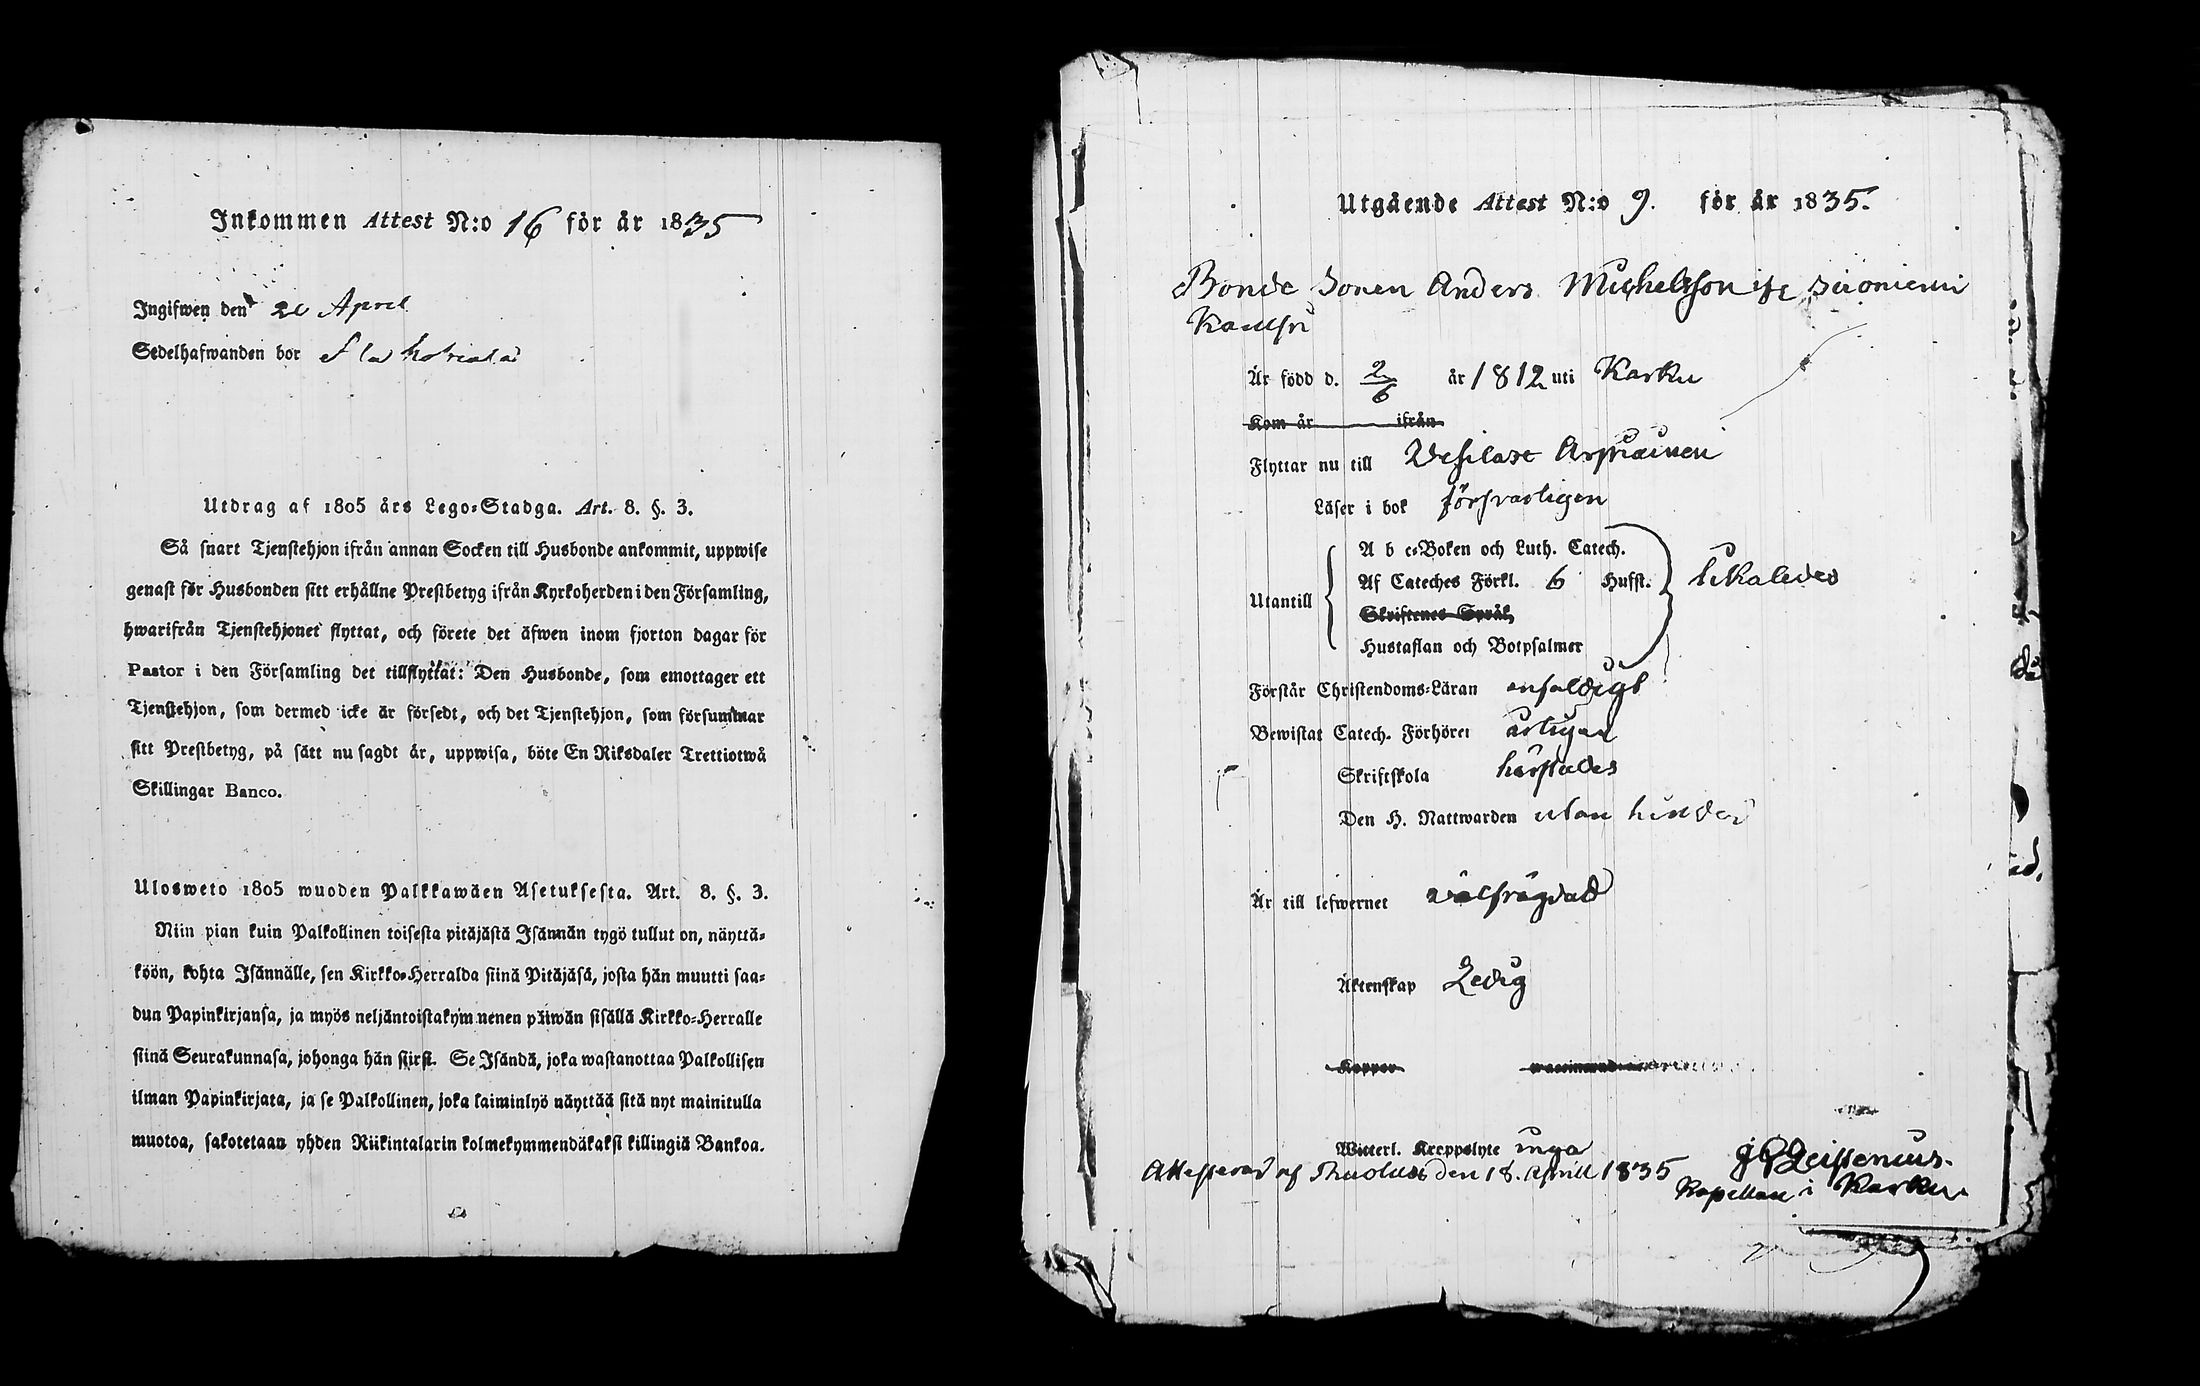 Inkommen Attest N:o 16 för år 1835
Ingifwen den April
Sedelhafwanden bor
Utdrag af 1805 års Lego-Stadga. Art. 8. §. 3.
Så snart Tjenstehjon ifrån annan Socken till Husbonde ankommit, uppwise
genast för Husbonden sitt erhållne Prestbetyg ifrån Kyrkoherden i den Församling,
hwarifrån Tjenstehjonet flyttat, och förete det äfwen inom fjorton dagar för
Pastor i den Församling det tillflyttat: Den Husbonde, som emottager ett
Tjenstehjon, som dermed icke är försedt, och det Tjenstehjon, som försummar
sitt Prestbetyg, på sätt nu sagdt är, uppwisa, böte En Riksdaler Trettiotwå
Skillingar Banco.
Ulosweto 1805 wuoden Palkkawäen Asetuksesta. Art. 8. §. 3.
Niin pian kuin Palkollinen toisesta pitäjästä Isännän tygö tullut on, näyttä-
köön, kohta Isännälle, sen Kirkko-Herralda siinä Pitäjäsä, josta hän muutti saa-
dun Papinkirjansa, ja myös neljäntoistakymmenen päiwän sisällä Kirkko-Herralle
siinä Seurakunnasa, johonga hän siirsi. Se Isändä, joka wastanottaa Palkollisen
ilman Papinkirjata, ja se Palkollinen, joka laiminlyö näyttää sitä nyt mainitulla
muotoa, sakotetaan yhden Riikintalarin kolmekymmendäkaksi killingiä Bankoa.
Utgående Attest N:o 9. för år 1835.
Bonde Sonen Anders Michelsson ifr
Är född d. 2/6 år 1812 uti Karku
Kom år ifrån
Flyttar nu till Vesilax
Läser i bok försvarligen
A b c-Boken och Luth. Catech.
Af Cateches Förkl. 6 Hufst. likaledes
Utantill
Skriftenes Språk
Hustaflan och Botpsalmer
Förstår Christendoms-Läran enfaldigt
Bewistat Catech. Förhöret årligen
Skriftskola härstädes
Den H. Nattwarden utan hinder
Är till lefwernet välfrägdad
Äktenskap Ledig
Koppor
Witterl. Kroppslyte inga
Attesterad af den 18. April 1835
Kapellan i Karku